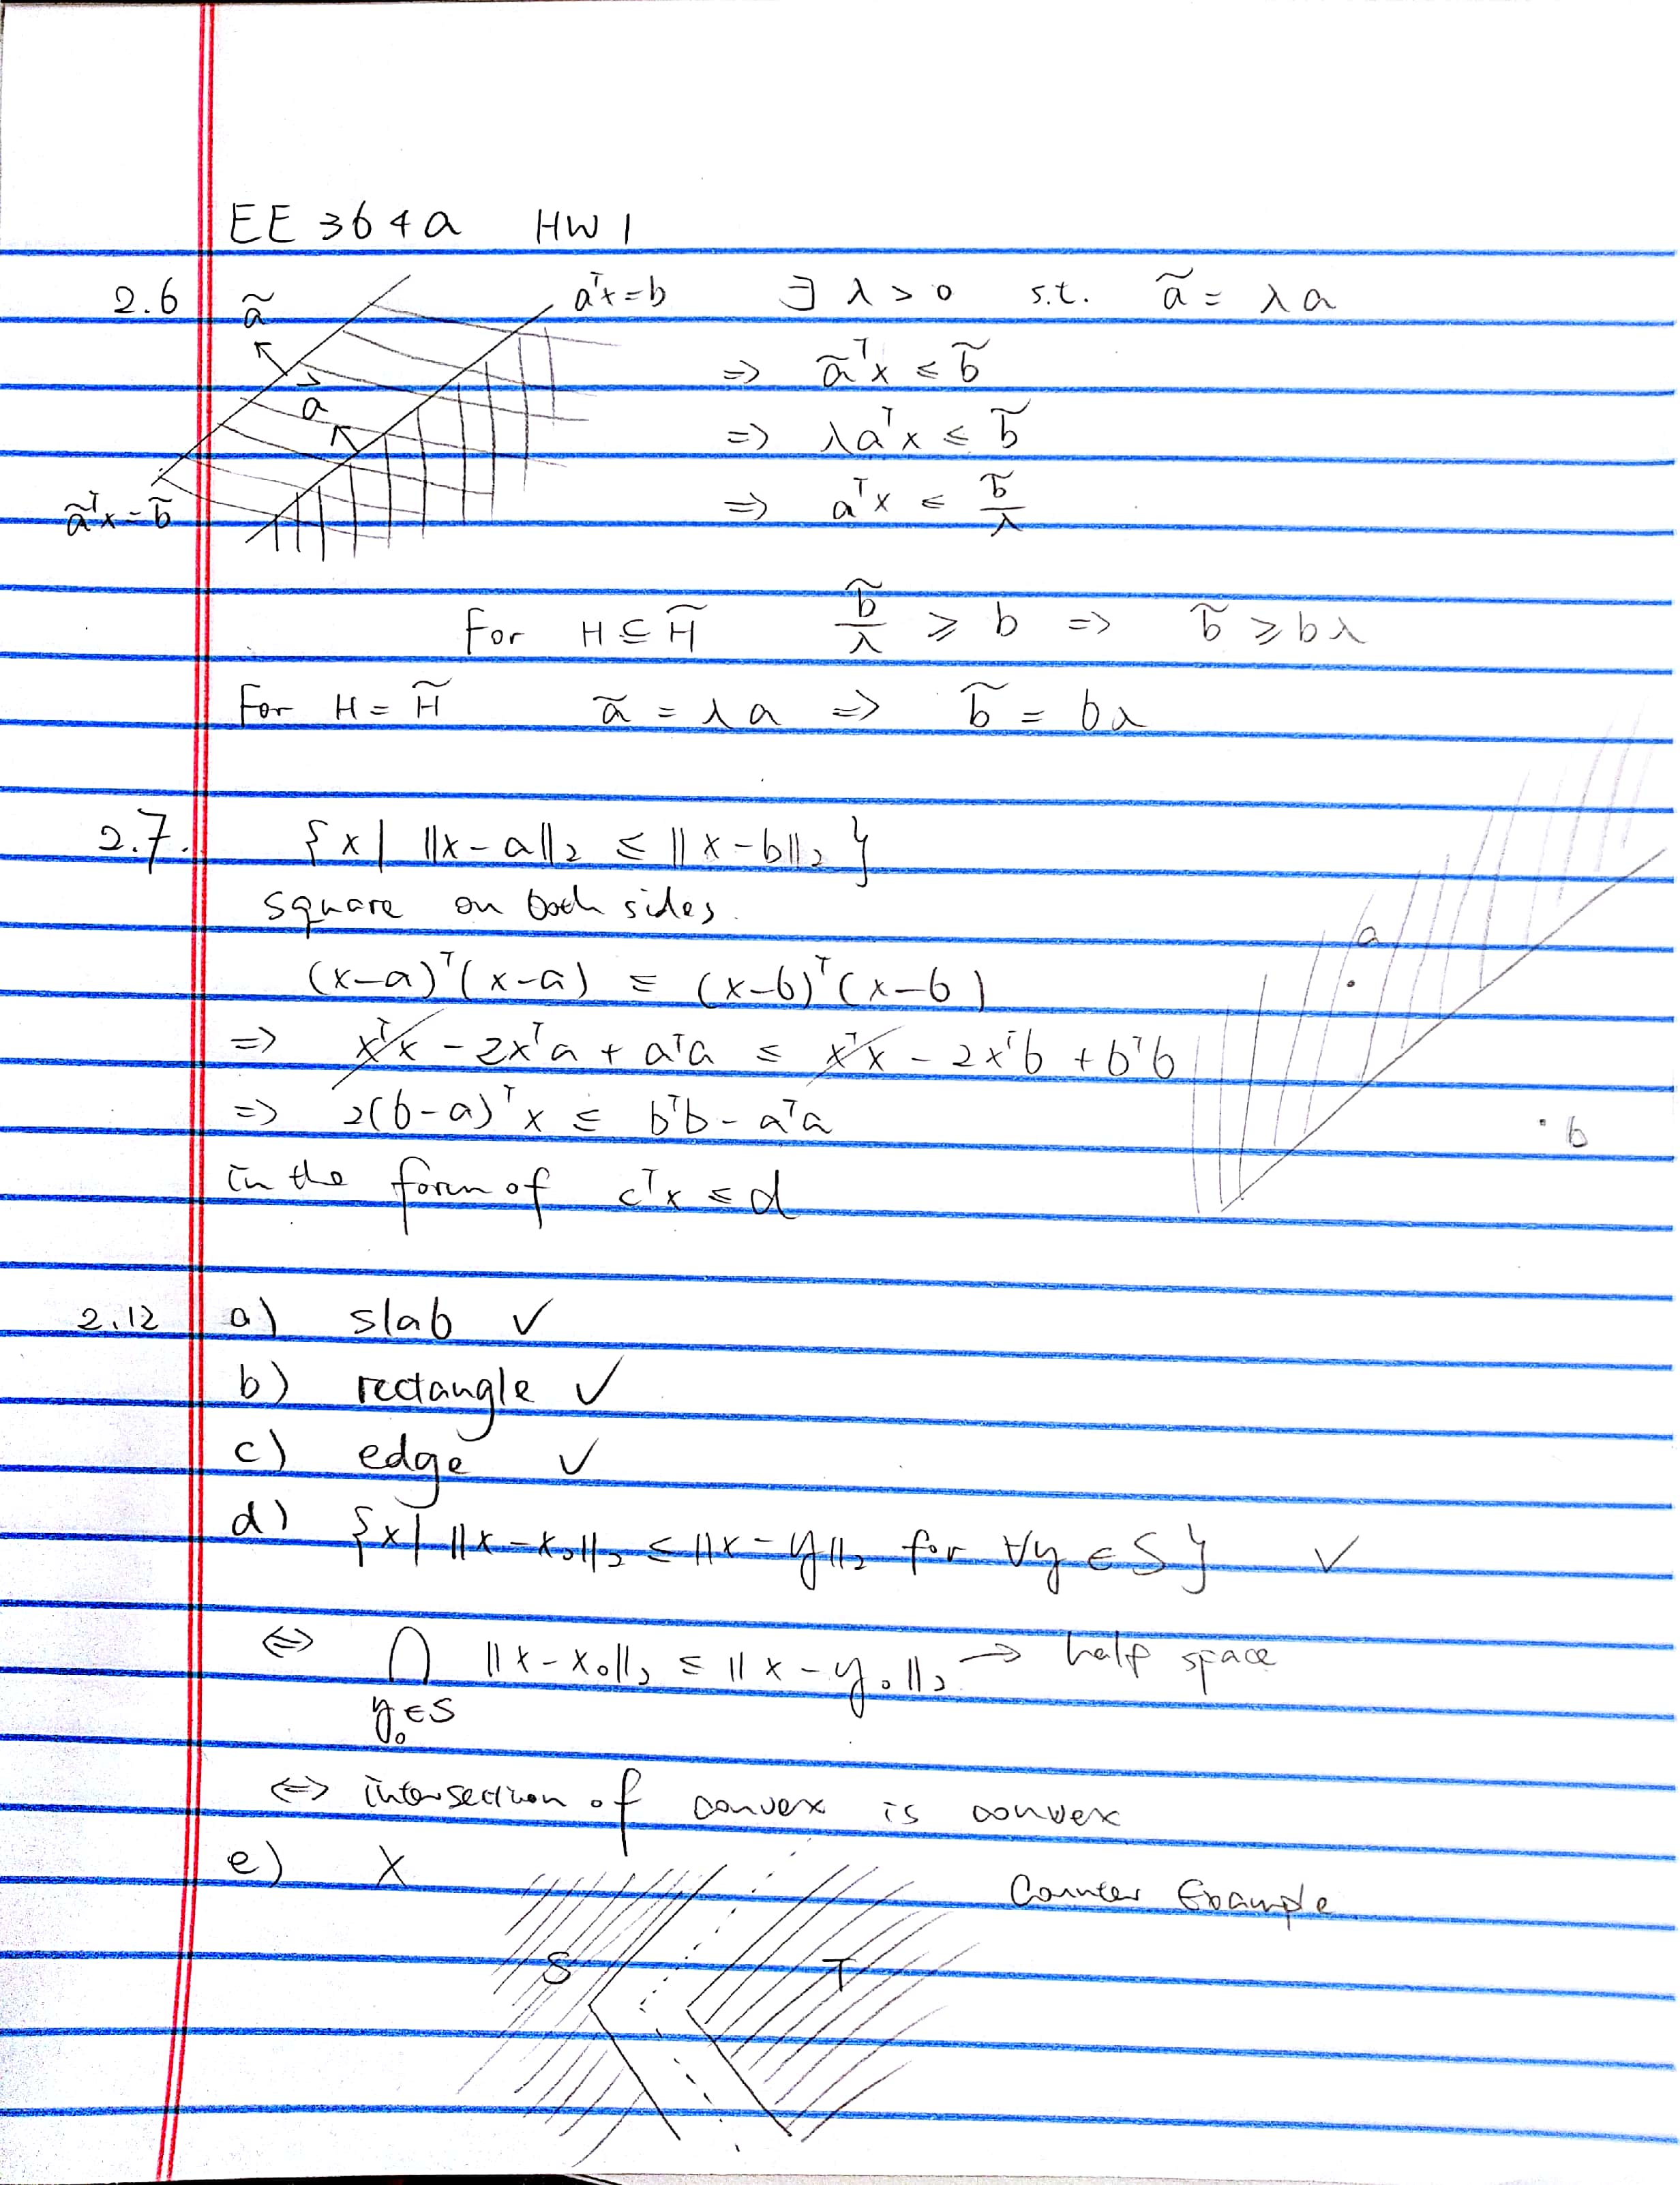 EE 364a HW 1
2.6 ã aᵀx = b ∃ λ > 0 s.t. ã = λa
⇒ ãᵀx ≤ b̃
a ⇒ λaᵀx ≤ b̃
ãᵀx = b̃ ⇒ aᵀx ≤ b̃/λ
For H ⊆ H̃ b̃/λ ≥ b ⇒ b̃ ≥ bλ
For H = H̃ ã = λa ⇒ b̃ = bλ
2.7. {x | ‖x-a‖₂ ≤ ‖x-b‖₂}
square on both sides.
a
(x-a)ᵀ(x-a) ≤ (x-b)ᵀ(x-b)
⇒ xᵀx - 2xᵀa + aᵀa ≤ xᵀx - 2xᵀb + bᵀb
⇒ 2(b-a)ᵀx ≤ bᵀb - aᵀa
b
in the form of cᵀx ≤ d
2.12 a) slab ✓
b) rectangle ✓
c) edge ✓
d) {x | ‖x-x₀‖₂ ≤ ‖x-y‖₂ for ∀y ∈ S} ✓
⇔ ⋂ ‖x-x₀‖₂ ≤ ‖x-y₀‖₂ → half space
y₀∈S
⇔ intersection of convex is convex
e) X Counter Example
S T